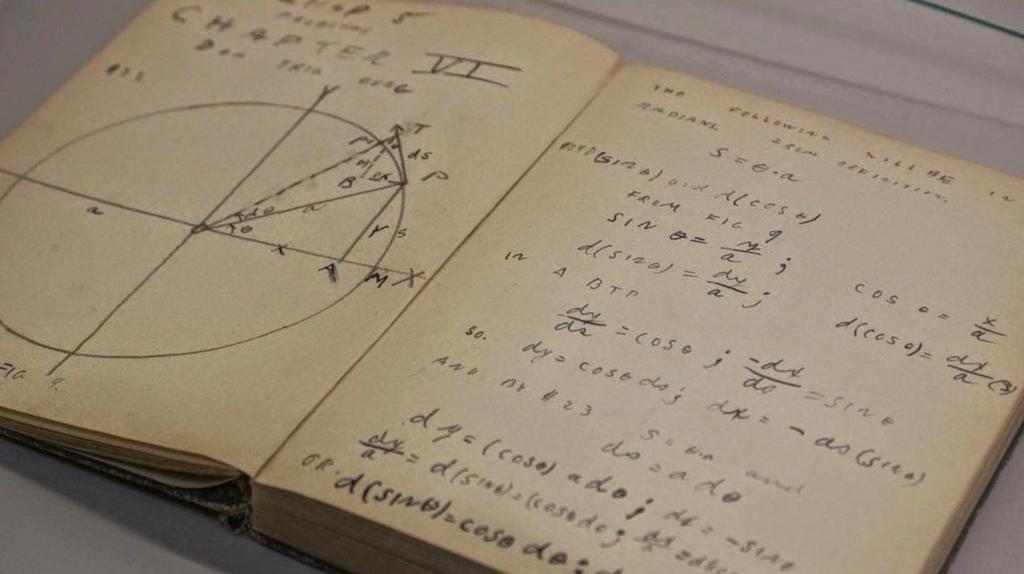 CHAP 5
CHAPTER VI
#23
Y
T
ds
P
B
dθ
a
θ
a
y
s
x
A
M
X
FIG 9.
THE FOLLOWING WILL BE IN
RADIANS. FROM DEFINITION.
S = θ·a
d(sin θ) and d(cos θ)
FROM FIG 9
SIN θ = y/a ; COS θ = x/a
d(sin θ) = dy/a ; d(cos θ) = dx/a (3)
IN Δ BTP
dy/ds = cos θ ; -dx/ds = SIN θ
SO. dy = cos θ ds ; dx = - ds (sin θ)
AND BY #23 S = θ·a and
ds = a dθ
dy = (cos θ) a dθ ; dx = - sin θ
dy/a = d(sin θ) = (cos θ dθ ;
OR. d(sin θ) = cos θ dθ ;